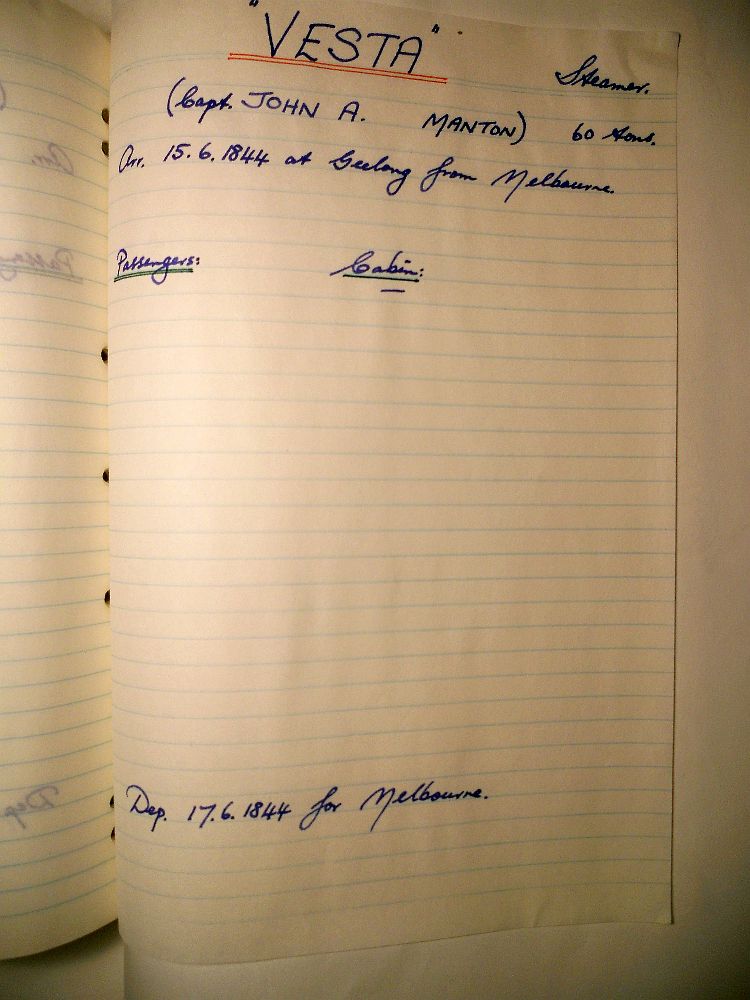 "VESTA"
Steamer.
(Capt. JOHN A. MANTON) 60 tons.
Arr. 15.6.1844 at Geelong from Melbourne.
Passengers: Cabin:
—
Dep. 17.6.1844 for Melbourne.